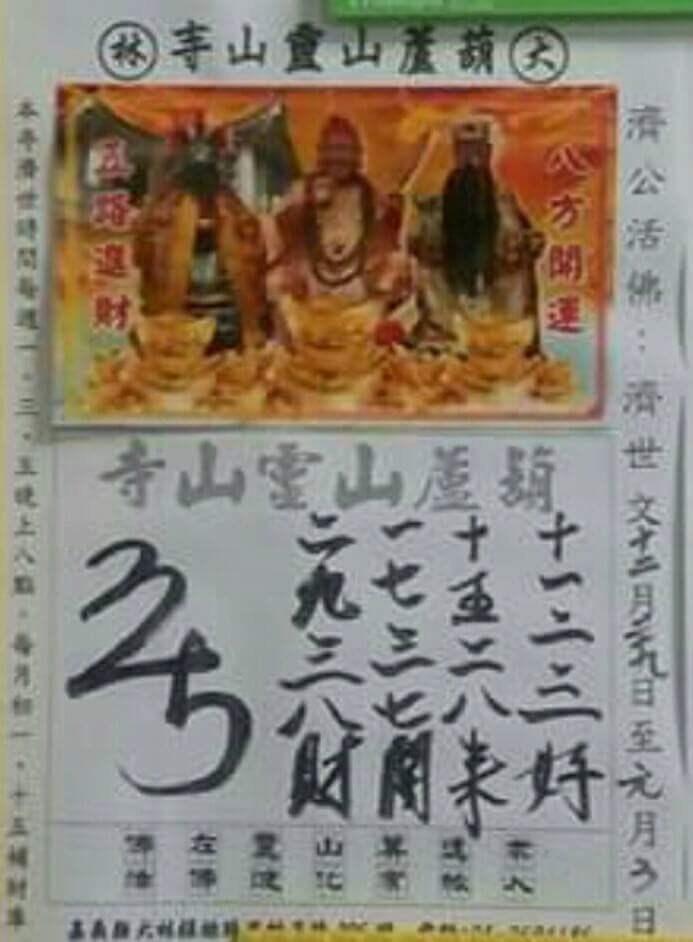 大 葫蘆山靈山寺 林
濟公活佛：濟世 文十二月二九日至元月3日
八方開運
五路進財
葫蘆山靈山寺
十一二三好
十五二八来
一七三七開
二九三八財
345
本寺濟世時間每週一、三、五晚上八點。每月初一、十五補財庫